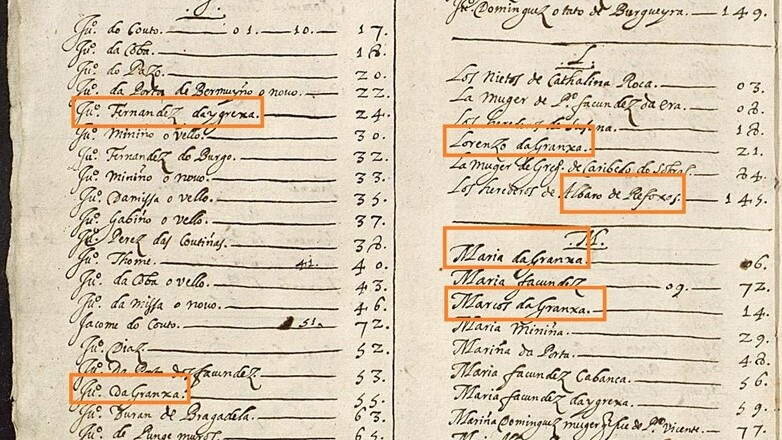 .J.
Ju.º do Couto. 01. 10. 17.
Ju.º da Coba. 18.
Ju.º do Pazo. 20.
Ju.º da Porta de Bermuyño o novo. 22.
Ju.º Fernandez daygrexa. 24.
Ju.º Miniño o vello. 30.
Ju.º Fernandez do Burgo. 32.
Ju.º Miniño o novo. 33.
Ju.º Damissa o vello. 35.
Ju.º Gabiño o vello. 37.
Ju.º Perez das Coutiñas. 38.
Ju.º Thome. 41. 40.
Ju.º da Coba o vello. 43.
Ju.º da Missa o novo. 46.
Jacome do Couto. 51. 72.
Ju.º Diaz. 52.
Ju.º facundez. 53.
Ju.º DaGranxa. 55.
Ju.º Duran de Bragadela. 63.
Ju.º de 65.
Dominguez o tato de Burgueyra. 149.
.L.
Los Nietos de Cathalina Roca. 03.
La Muger de P.º facundez da era. 08.
Los herederos de 18.
Lorenzo daGranxa. 21.
La Muger de Greg.º de Caribelo do 84.
Los herederos de Albaro de Refoxos. 145.
.M.
Maria daGranxa 06.
Maria facundez 09. 72.
Marcos daGranxa. 14.
Maria Miniña. 29.
Mariña da Porta. 48.
Maria facundez Cabanca. 56.
Maria facundez daygrexa. 59.
Mariña Dominguez muger de P.º Vicente. 77.